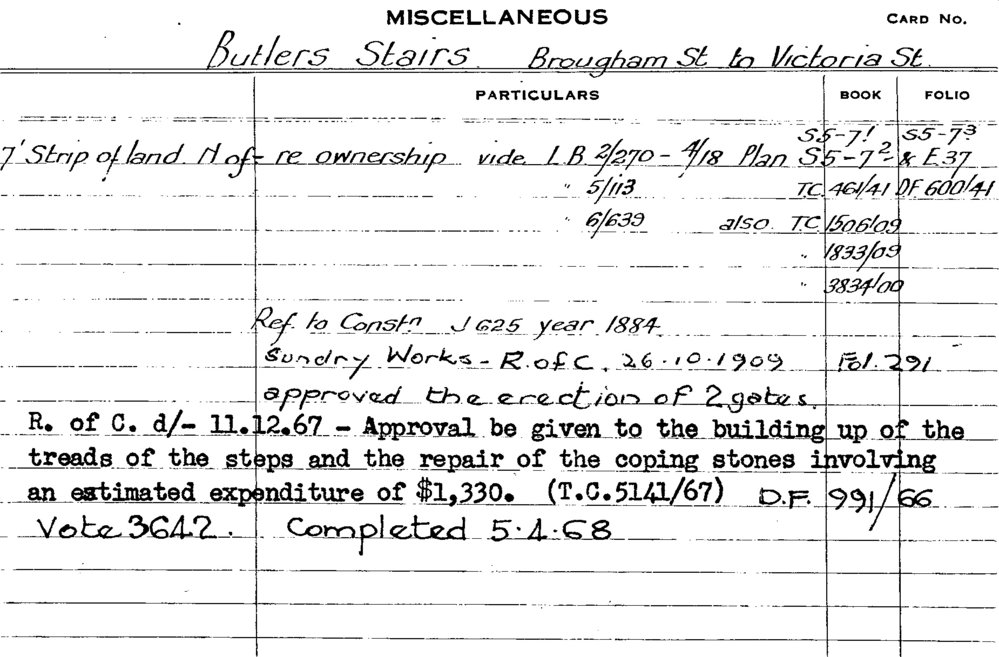 MISCELLANEOUS CARD No.
Butlers Stairs. Brougham St to Victoria St.
PARTICULARS BOOK FOLIO
S5-7¹ S5-7³
7' Strip of land. N of - re ownership vide L.B. 2/270 - 4/18 Plan S5-7² & E.37
" 5/113 T.C. 461/41 DF 600/41
" 6/639 also T.C 1506/09
" 1833/09
" 3834/00
Ref. to Constn J 625 year 1884
Sundry Works - R. of C. 26.10.1909 Fol. 291
approved the erection of 2 gates.
R. of C. d/- 11.12.67 - Approval be given to the building up of the
treads of the steps and the repair of the coping stones involving
an estimated expenditure of $1,330. (T.C.5141/67) D.F. 991/66
Vote 3642. Completed 5.4.68